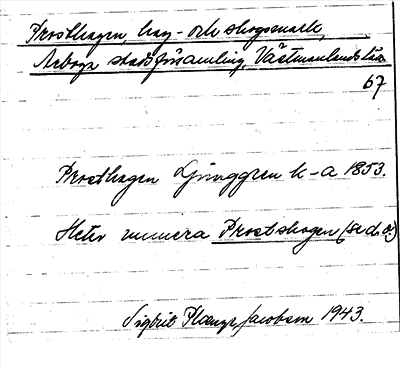 Prosthagen, hag- och skogsmark,
Arboga stadsförsamling, Västmanlands län
67
Prosthagen Ljunggren k-a 1853.
Heter numera Prostskogen (se d. o.)
Sigbrit Plænge Jacobson 1943.